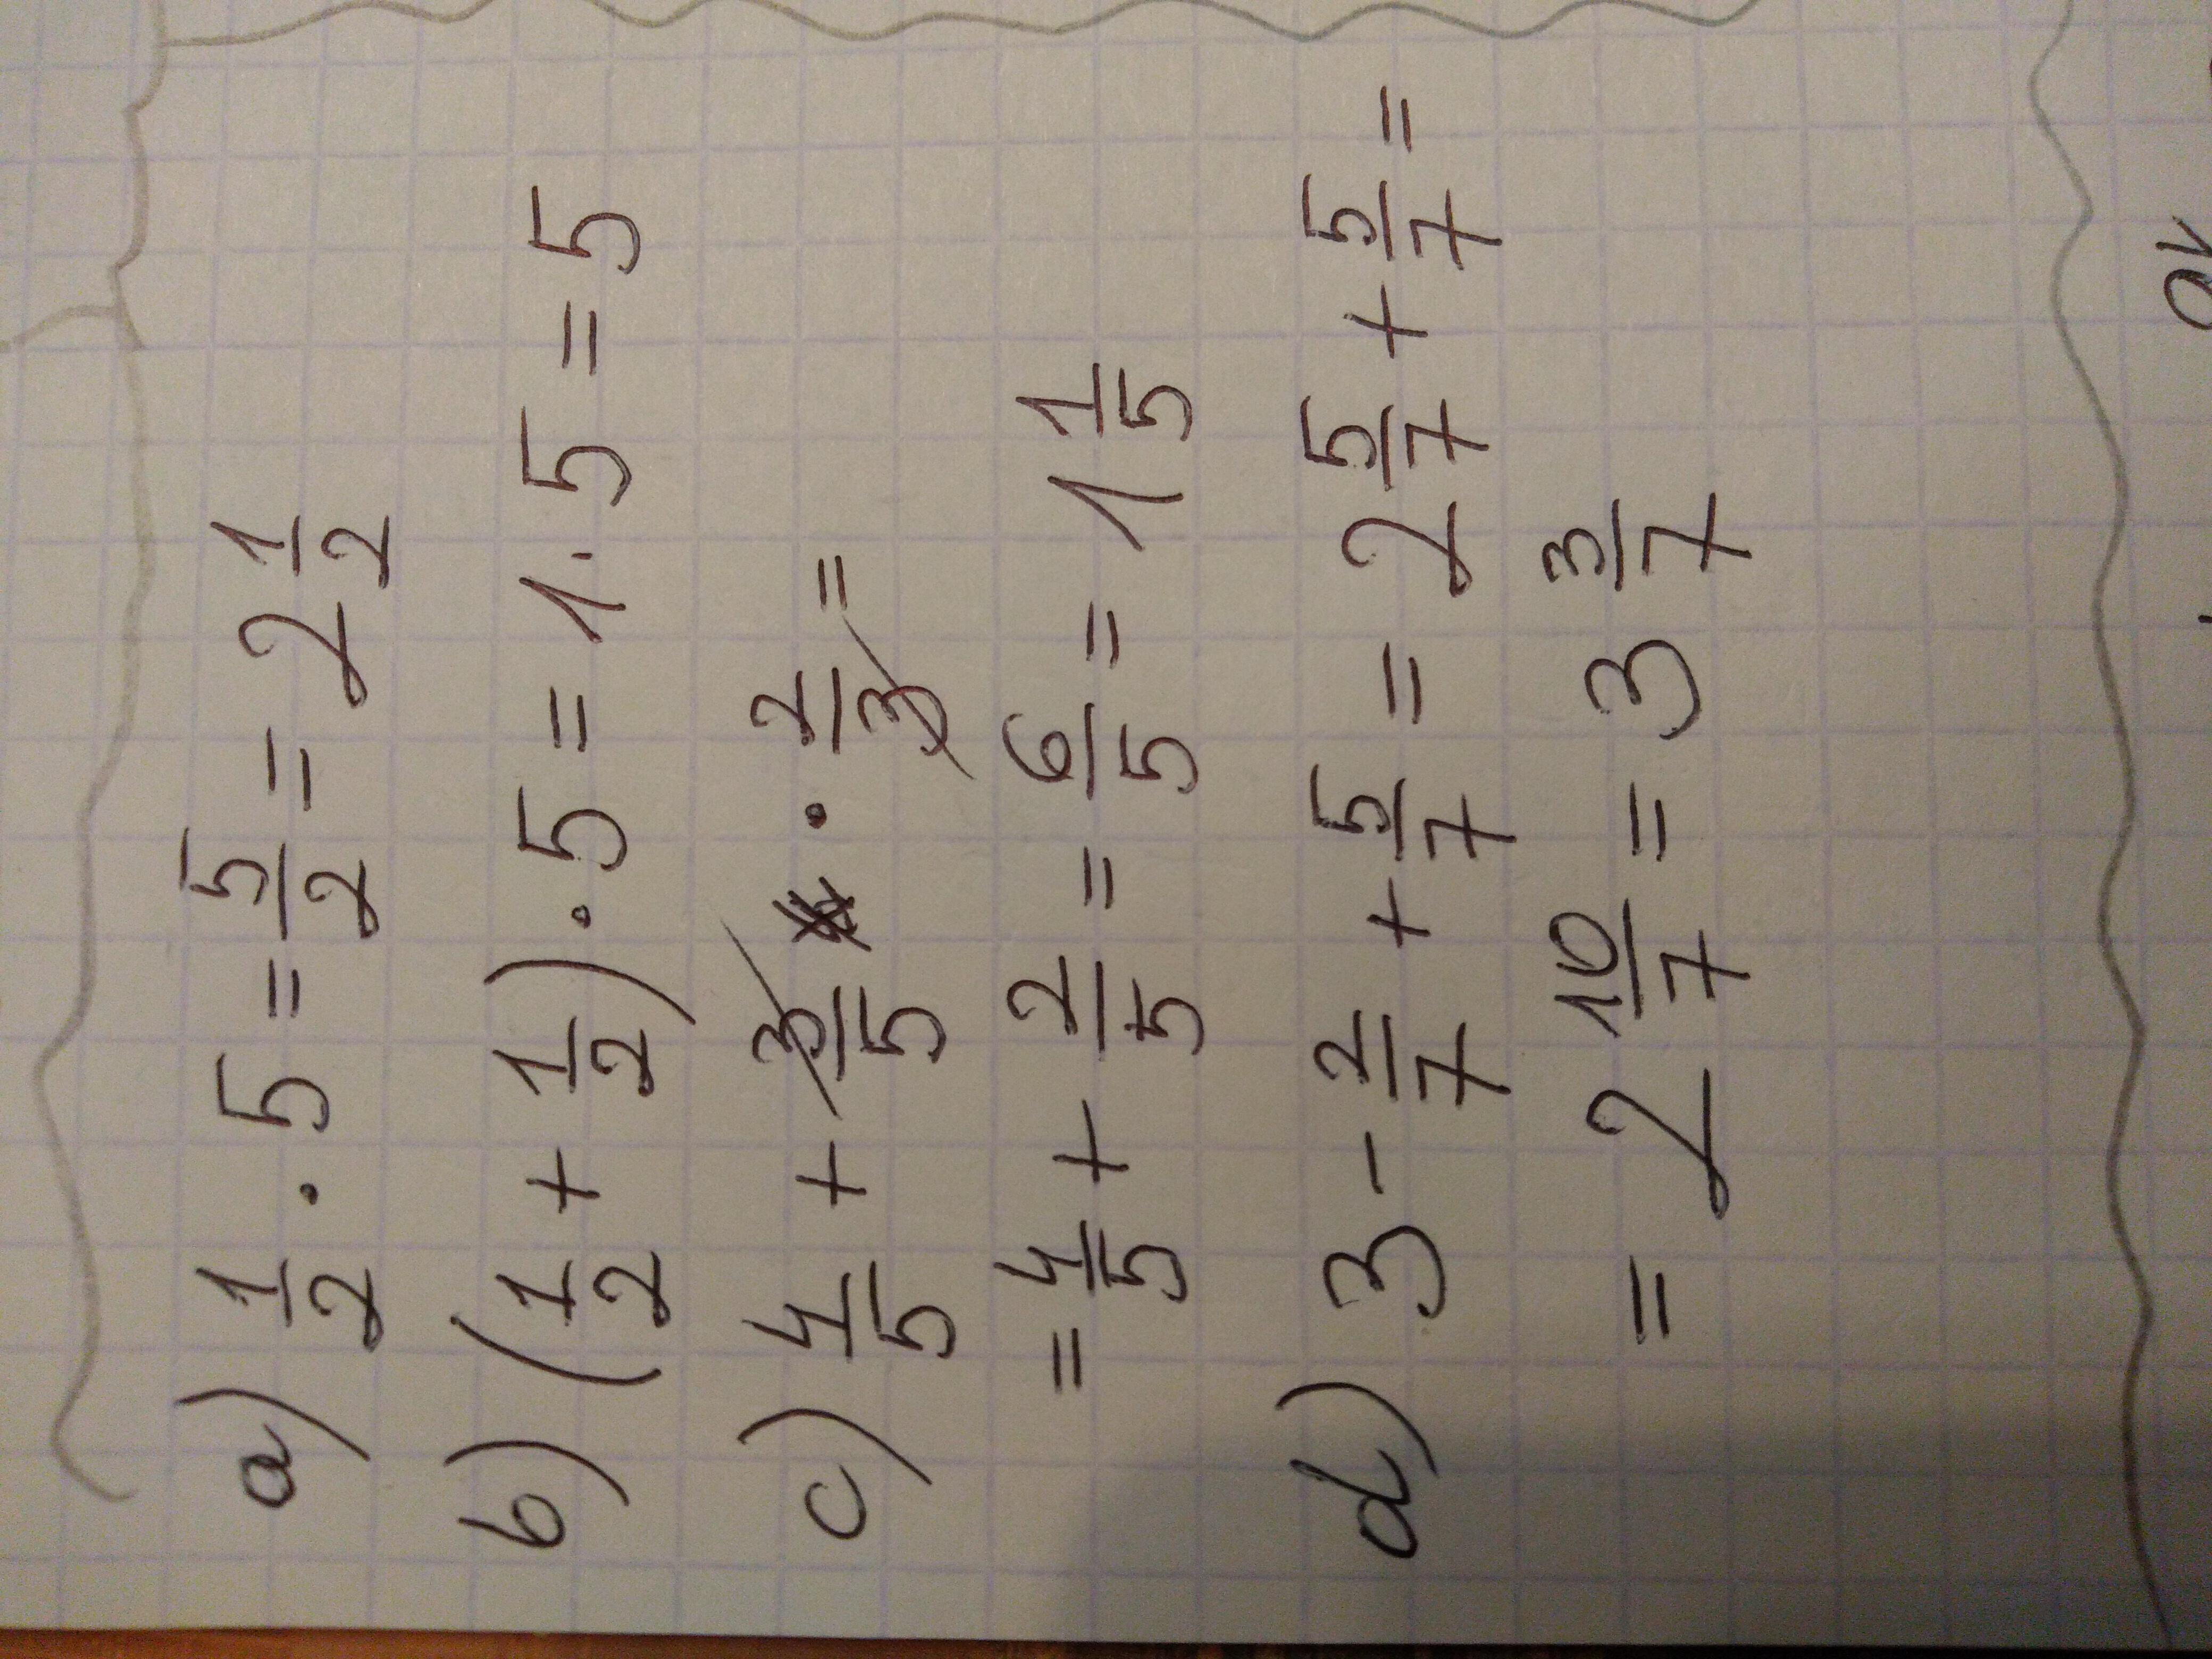 a) 1/2 · 5 = 5/2 = 2 1/2
b) (1/2 + 1/2) · 5 = 1 · 5 = 5
c) 4/5 + 3/5 · 2/3 =
= 4/5 + 2/5 = 6/5 = 1 1/5
d) 3 - 2/7 + 5/7 = 2 5/7 + 5/7 =
= 2 10/7 = 3 3/7